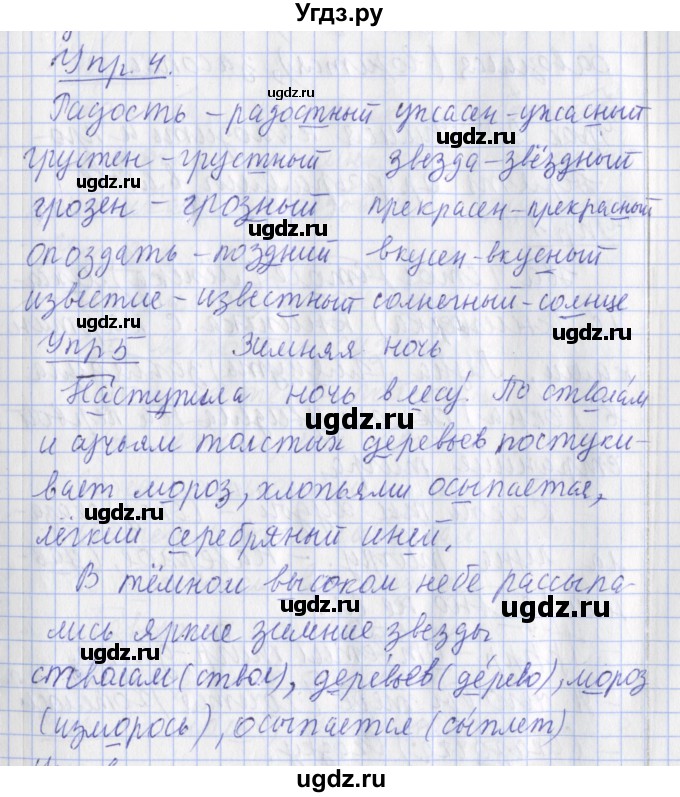 Угдз.ру
Упр. 4.
Радость – радостный ужасен – ужасный
грустен – грустный звезда – звёздный
грозен – грозный прекрасен – прекрасный
опоздать – поздний вкусен – вкусный
известие – известный солнечный – солнце
Упр 5 Зимняя ночь
Наступила ночь в лесу. По стволам
и сучьям толстых деревьев постуки-
вает мороз, хлопьями осыпается,
лёгкий серебряный иней.
В тёмном высоком небе рассыпа-
лись яркие зимние звезды
стволам (ствол), деревьев (дерево), мороз
(изморось), осыпается (сыплет)
ugdz.ru
ugdz.ru
ugdz.ru
ugdz.ru
ugdz.ru
ugdz.ru
ugdz.ru
ugdz.ru
ugdz.ru
ugdz.ru
ugdz.ru
ugdz.ru
ugdz.ru
ugdz.ru